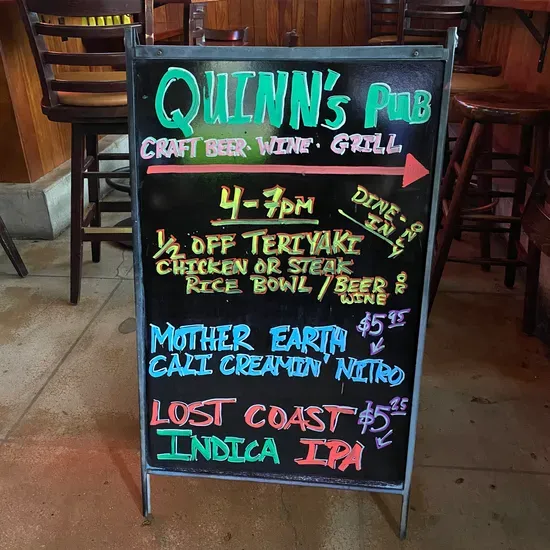 QUINN's PUB
CRAFT BEER · WINE · GRILL
4-7pm
DINE-IN ONLY
1/2 OFF TERIYAKI
CHICKEN OR STEAK
RICE BOWL / BEER OR WINE
MOTHER EARTH $5.95
CALI CREAMIN' NITRO
LOST COAST $5.25
INDICA IPA